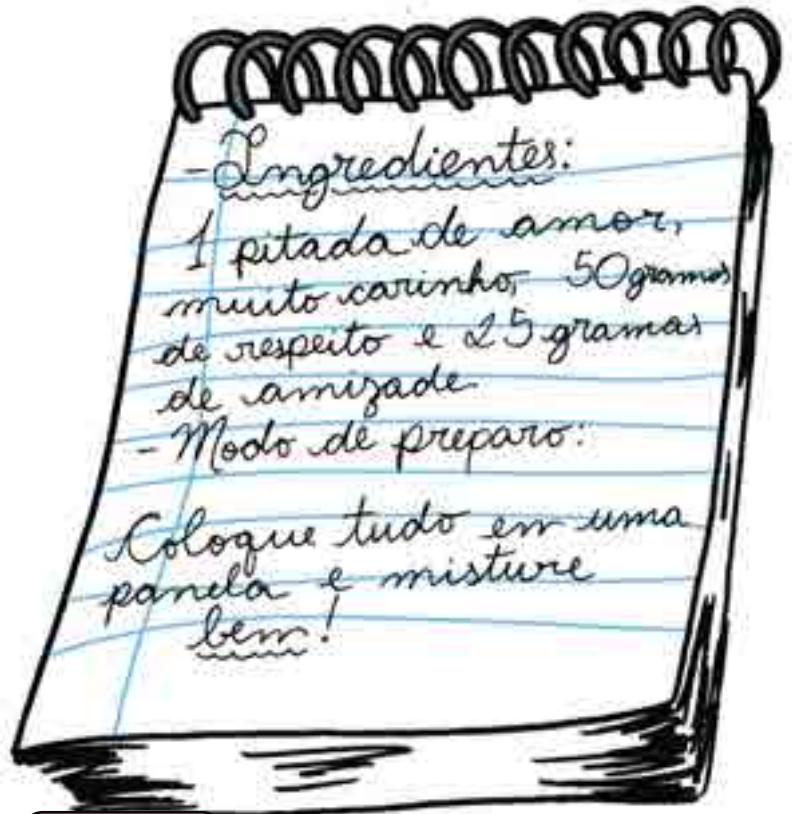 - Ingredientes:
1 pitada de amor,
muito carinho, 50 gramas
de respeito e 25 gramas
de amizade
- Modo de preparo:
Coloque tudo em uma
panela e misture
bem!